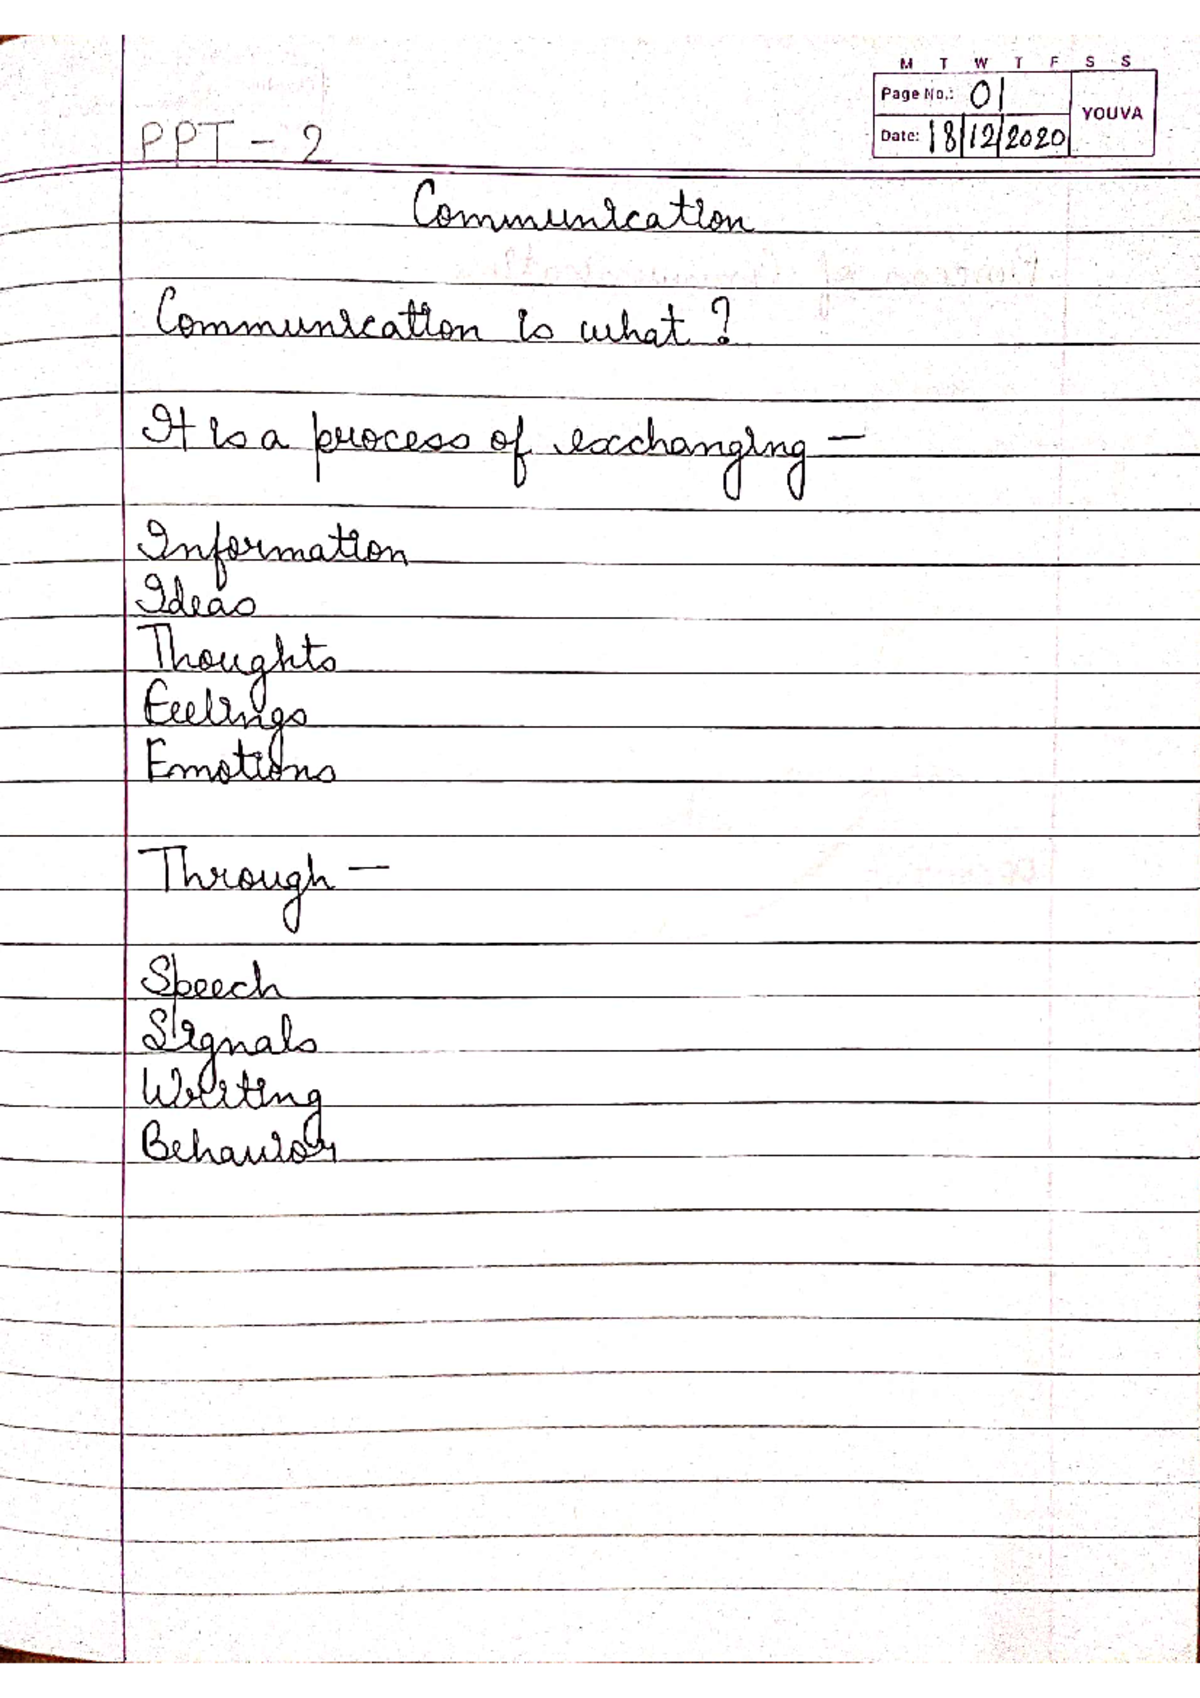 M T W T F S S
Page No.: 01
YOUVA
Date: 18/12/2020
PPT - 2
Communication
Communication is what ?
It is a process of exchanging —
Information
Ideas
Thoughts
Feelings
Emotions
Through —
Speech
Signals
Writing
Behavior